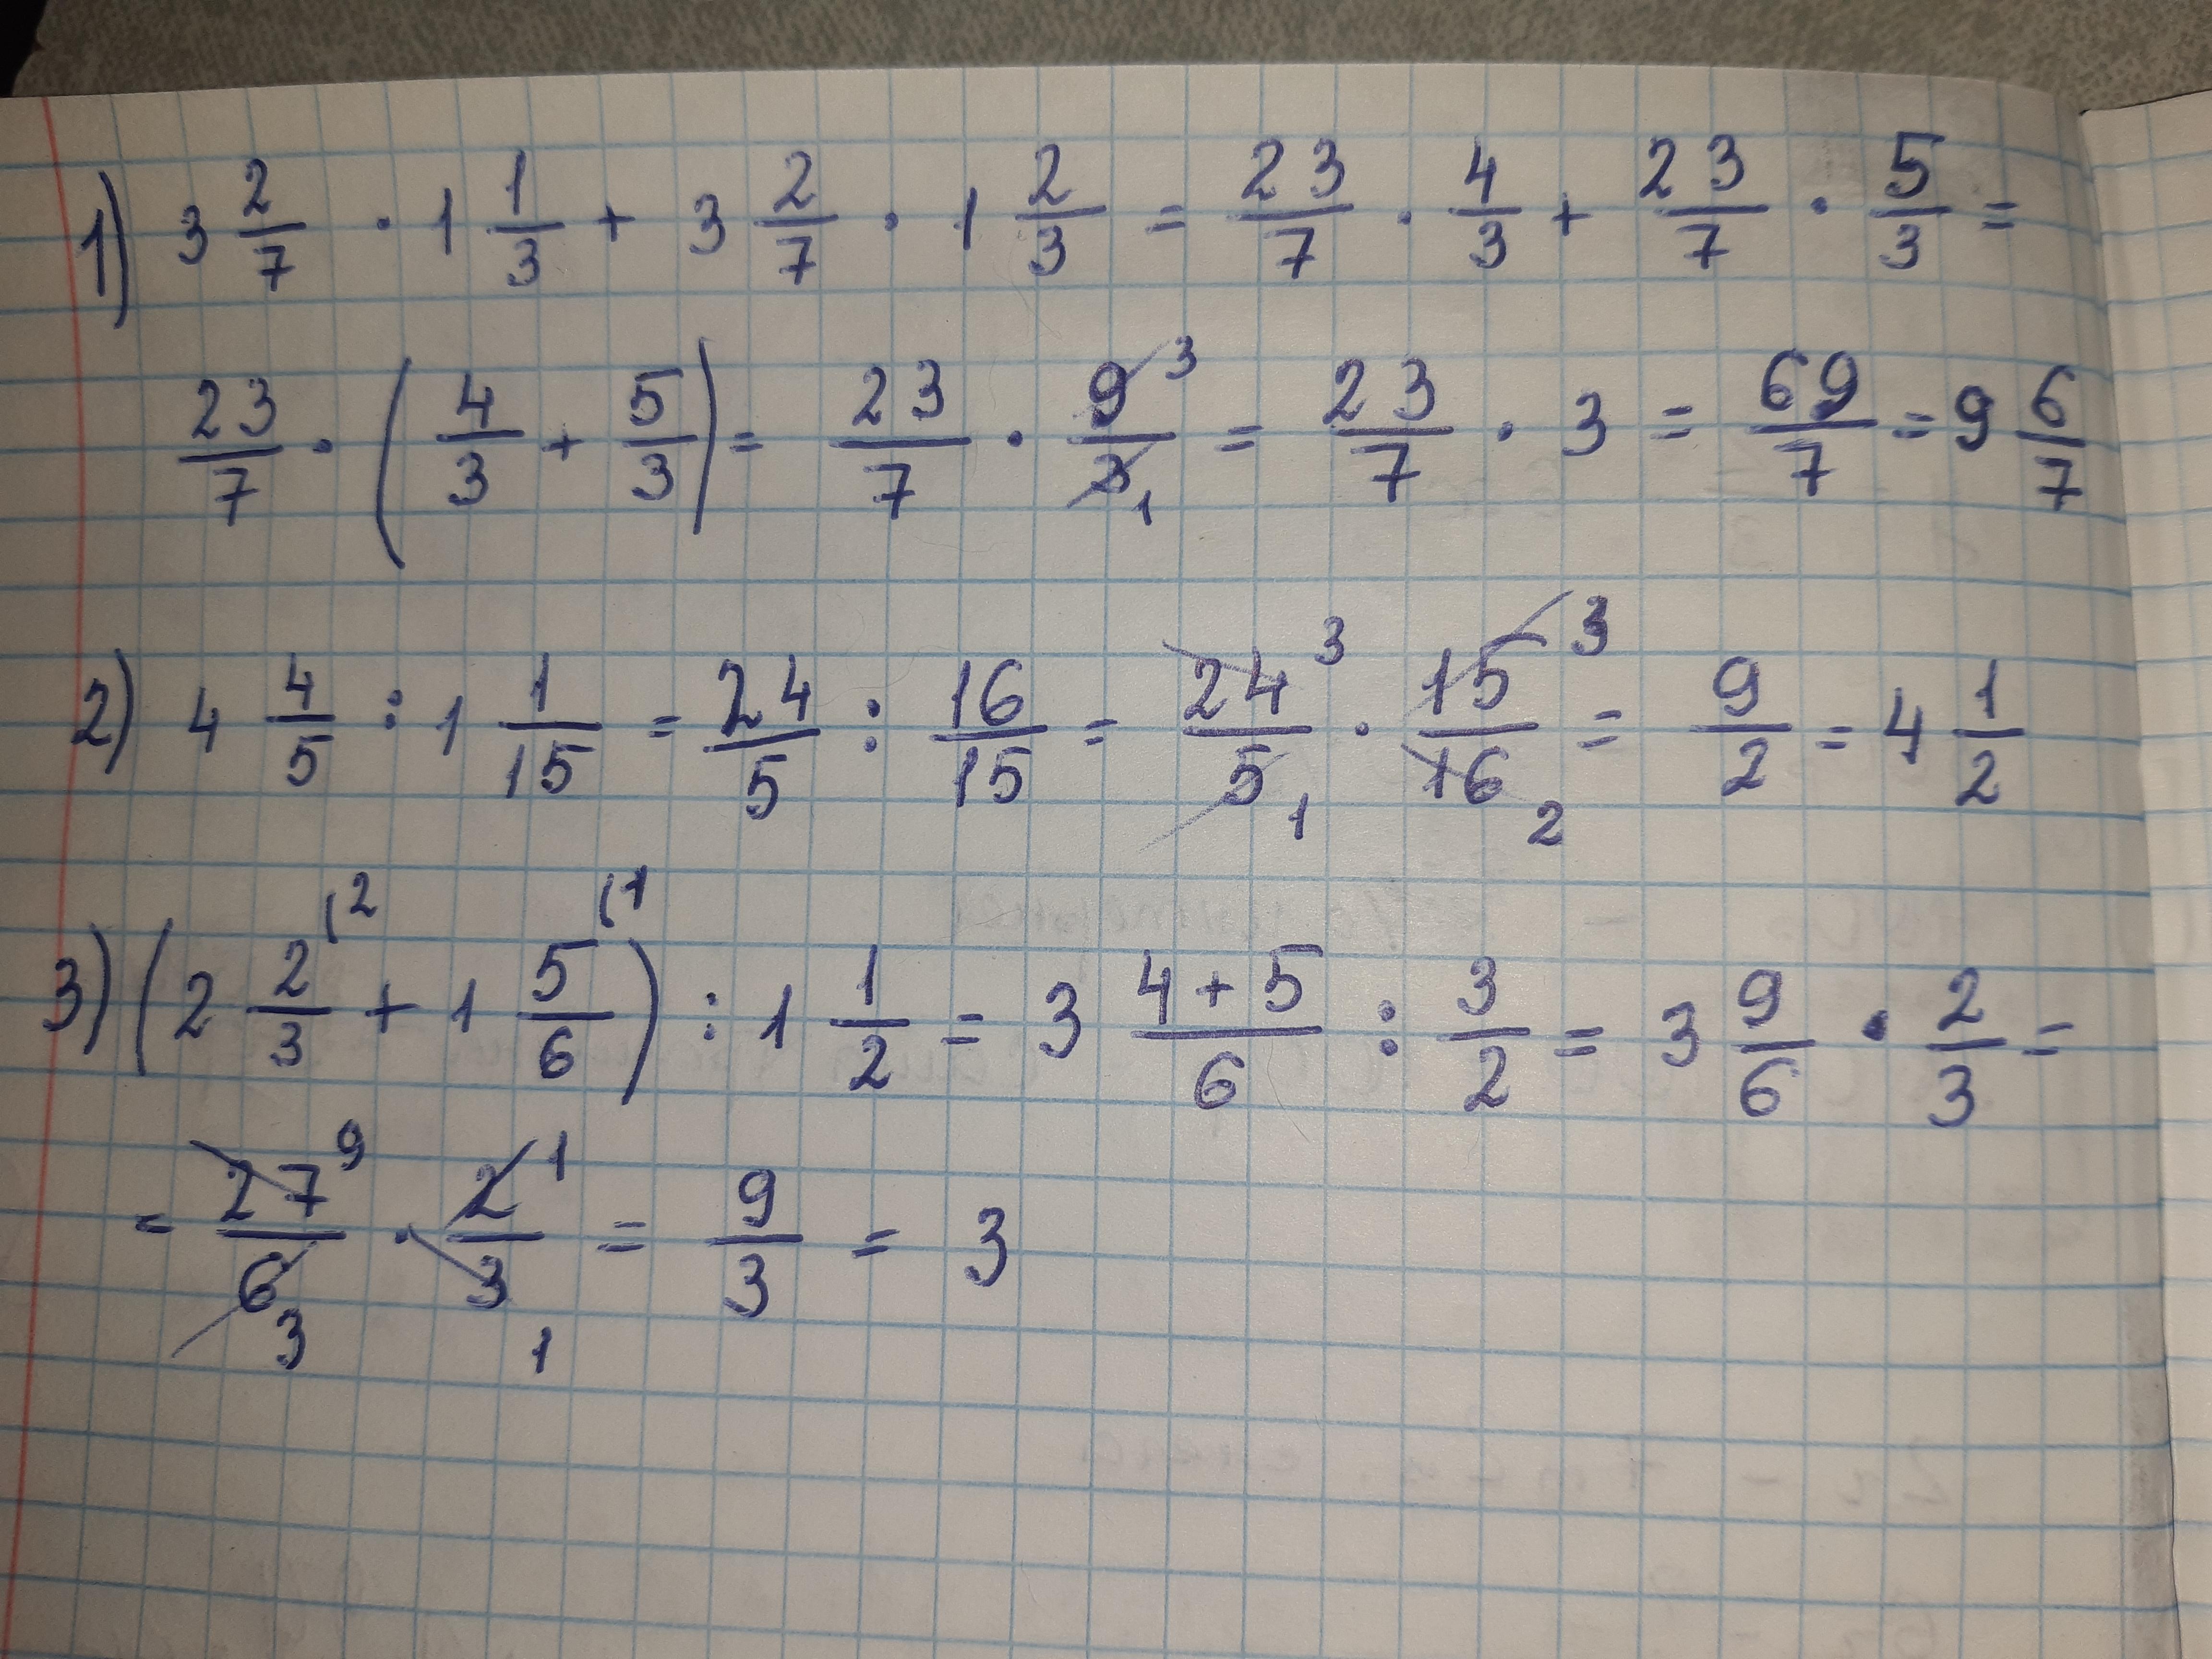 1) 3 2/7 · 1 1/3 + 3 2/7 · 1 2/3 = 23/7 · 4/3 + 23/7 · 5/3 =
23/7 · (4/3 + 5/3) = 23/7 · 9 3/3 1 = 23/7 · 3 = 69/7 = 9 6/7
2) 4 4/5 : 1 1/15 = 24/5 : 16/15 = 24 3/5 1 · 15 3/16 2 = 9/2 = 4 1/2
3) (2 2/3 (2 + 1 5/6 (1) : 1 1/2 = 3 4+5/6 : 3/2 = 3 9/6 · 2/3 =
= 27 9/6 3 · 2 1/3 1 = 9/3 = 3